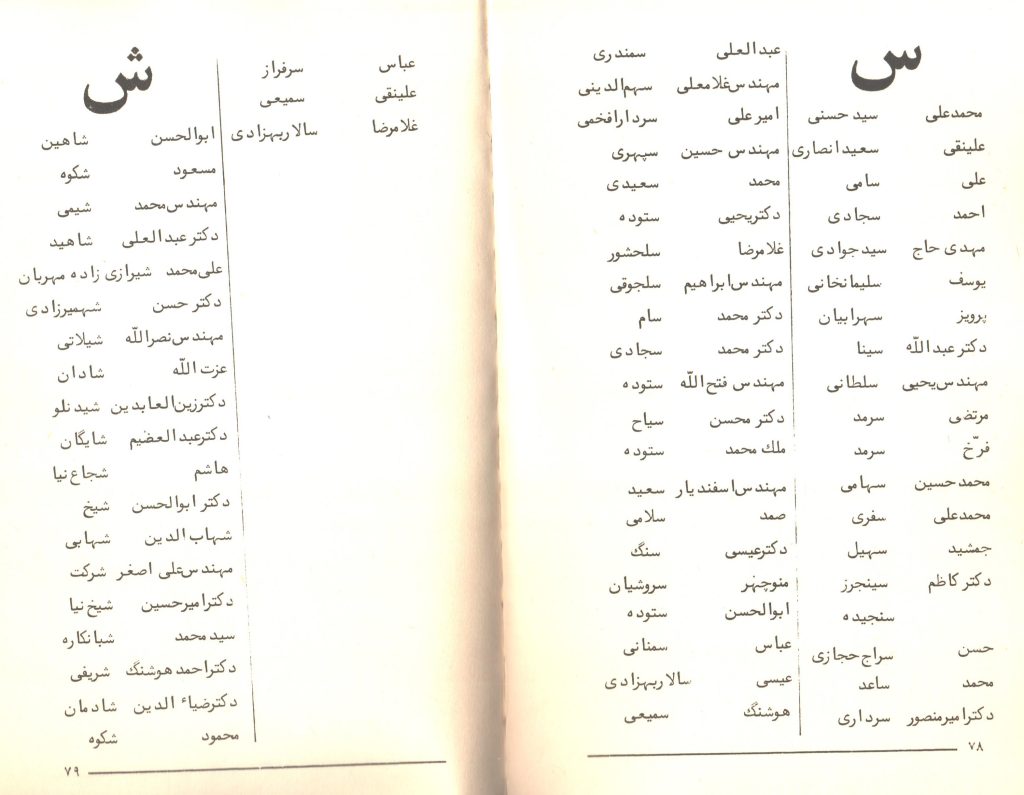 س
محمدعلی سید حسنی
علینقی سعیدانصاری
علی سامی
احمد سجادی
مهدی حاج سیدجوادی
یوسف سلیمانخانی
پرویز سهرابیان
دکتر عبدالله سینا
مهندس یحیی سلطانی
مرتضی سرمد
فرّخ سرمد
محمدحسین سهامی
محمدعلی سفری
جمشید سهیل
دکتر کاظم سینجرز
سنجیده
حسن سراج حجازی
محمد ساعد
دکترامیرمنصور سرداری
عبدالعلی سمندری
مهندس غلامعلی سهم‌الدینی
امیرعلی سردارافخمی
مهندس حسین سپهری
محمد سعیدی
دکتریحیی ستوده
غلامرضا سلحشور
مهندس ابراهیم سلجوقی
دکتر محمد سام
دکتر محمد سجادی
مهندس فتح‌الله ستوده
دکتر محسن سیاح
ملك محمد ستوده
مهندس اسفندیار سعید
صمد سلامی
دکترعیسی سنگ
منوچهر سروشیان
ابوالحسن ستوده
عباس سمنانی
عیسی سالاربهزادی
هوشنگ سمیعی
۷۸
عباس سرفراز
علینقی سمیعی
غلامرضا سالاربهزادی
ش
ابوالحسن شاهین
مسعود شکوه
مهندس محمد شیمی
دکتر عبدالعلی شاهید
علی‌محمد شیرازی زاده مهربان
دکتر حسن شهمیرزادی
مهندس نصرالله شیلاتی
عزت الله شادان
دکترزین‌العابدین شیدنلو
دکترعبدالعضیم شایگان
هاشم شجاع نیا
دکتر ابوالحسن شیخ
شهاب الدین شهابی
مهندس علی اصغر شرکت
دکترامیرحسین شیخ نیا
سیدمحمد شبانکاره
دکتراحمد هوشنگ شریفی
دکترضیاء الدین شادمان
محمود شکوه
۷۹